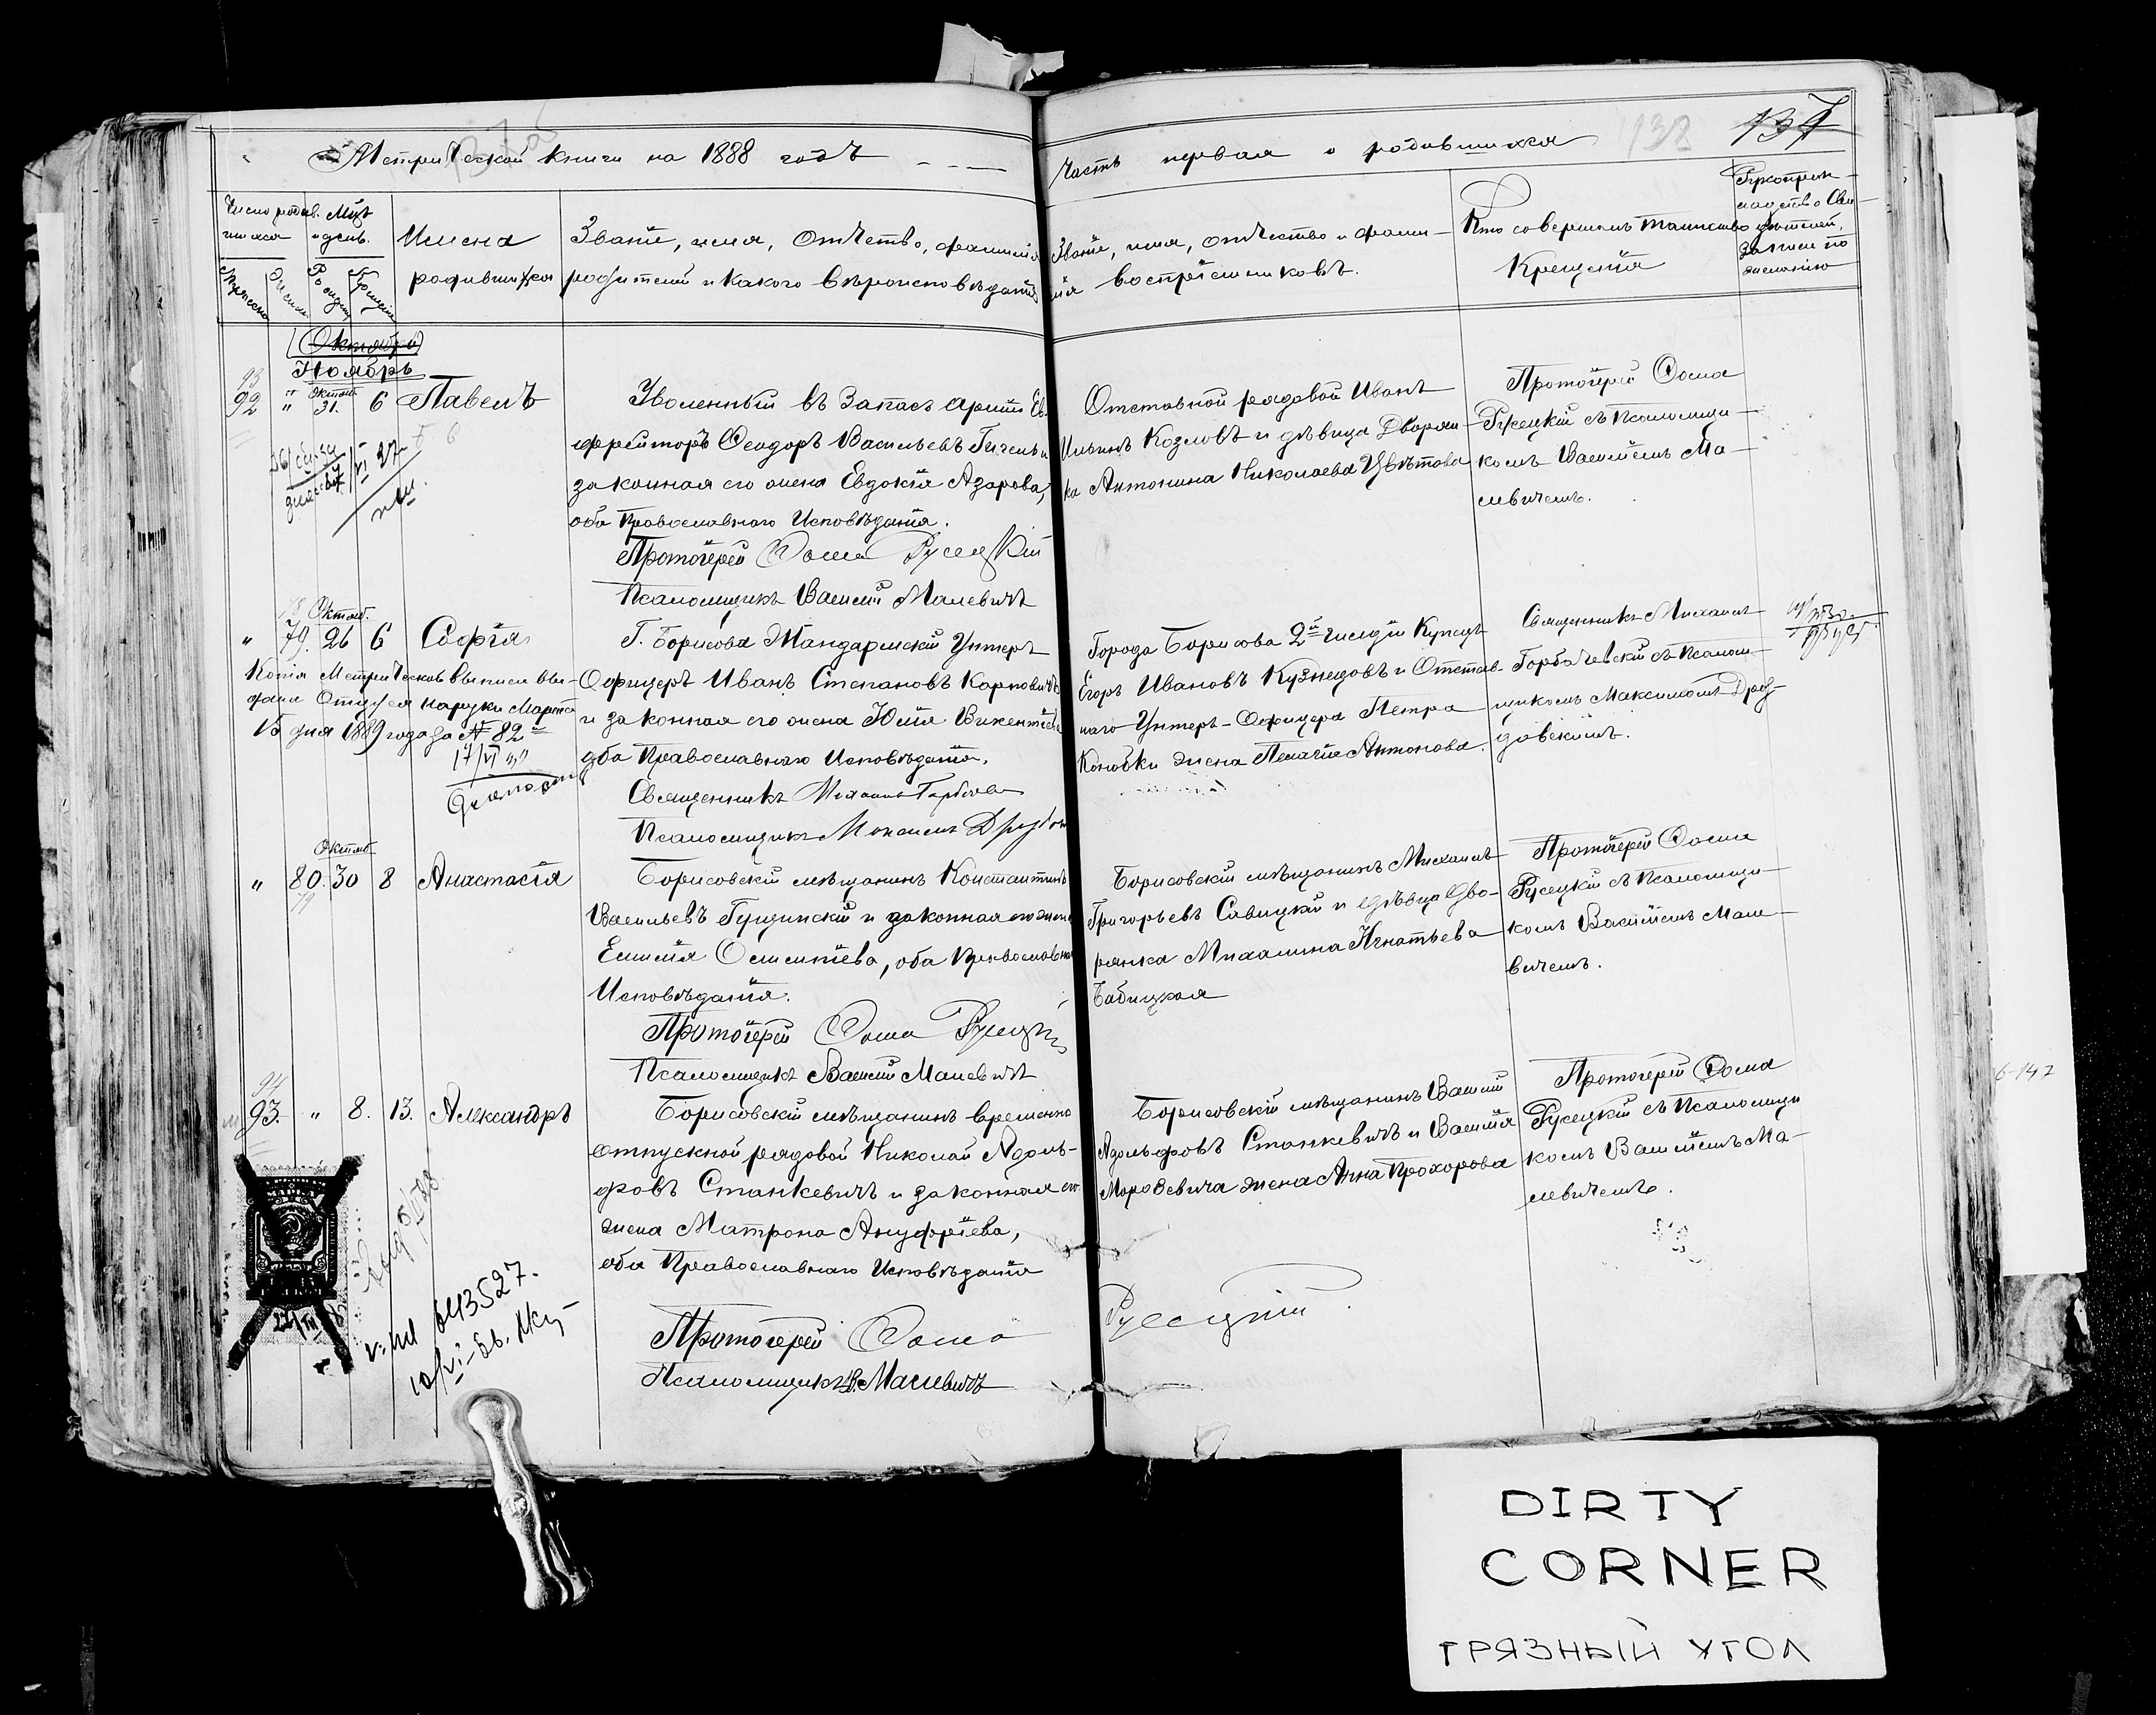 Метрической книги на 1888 годъ
часть первая о родившихся
132
137
Число родив-
шихся
Мцъ
и день.
Имена
родившихся
Званіе, имя, отчество, фамилія
родителей и какого вѣроисповѣданія
Званіе, имя, отчество и фами-
лія воспріемниковъ.
Кто совершалъ таинство
Крещенія
Октябрь
Ноябрь
93
92 " Октяб. 31. 6 Павелъ
Уволенный въ запасъ арміи Еф-
фрейторъ Ѳеодоръ Васильевъ
законная его жена Евдокія Азарова,
оба Православнаго Исповѣданія.
Протоіерей Ѳома Русецкій
Псаломщикъ Василій Малевичъ
Отставной рядовой Иванъ
Ильинъ Козловъ и дѣвица Дворян-
ка Антонина Николаева Цвѣткова
Протоіерей Ѳома
Русецкій съ Псаломщи-
комъ Василіемъ Ма-
левичемъ.
" 79. Октяб. 26 6 Софія
Копія Метрической выписи вы-
дана Отцу ея на руки Марта
15 дня 1889 года за № 82
Г. Борисова Жандармскій Унтеръ
Офицеръ Иванъ Степановъ Карповичъ
и законная его жена Юлія Викентіева
оба Православнаго Исповѣданія.
Священникъ Михаилъ Горбачевскій
Псаломщикъ Максимъ
Города Борисова 2й гильдіи Купецъ
Егоръ Ивановъ Кузнецовъ и Отстав-
наго Унтеръ-Офицера Петра
жена Пелагія Антонова.
Священникъ Михаилъ
Горбачевскій съ Псалом-
щикомъ Максимомъ Дроз-
довскимъ.
" 80. Октяб. 30 8 Анастасія
79
Борисовскій мѣщанинъ Константинъ
Васильевъ Гущинскій и законная его жена
Емилія, оба Православнаго
Исповѣданія.
Протоіерей Ѳома Русецкій
Псаломщикъ Василій Малевичъ
Борисовскій мѣщанинъ Михаилъ
Григорьевъ Савицкій и дѣвица Дво-
рянка Михалина Игнатьева
Бабицкая
Протоіерей Ѳома
Русецкій съ Псаломщи-
комъ Василіемъ Мале-
вичемъ.
94
93. " 8. 13. Александръ
Борисовскій мѣщанинъ временно
отпускной рядовой Николай Адоль-
фовъ Станкевичъ и законная его
жена Матрона Ануфріева,
оба Православнаго Исповѣданія
Протоіерей Ѳома Русецкій
Псаломщикъ В. Малевичъ
Борисовскій мѣщанинъ Василій
Адольфовъ Станкевичъ и Василія
Морозевича жена Анна Прохорова
Протоіерей Ѳома
Русецкій съ Псаломщи
комъ Василіемъ Ма-
левичемъ.
6-147
DIRTY
CORNER
ГРЯЗНЫЙ УГОЛ